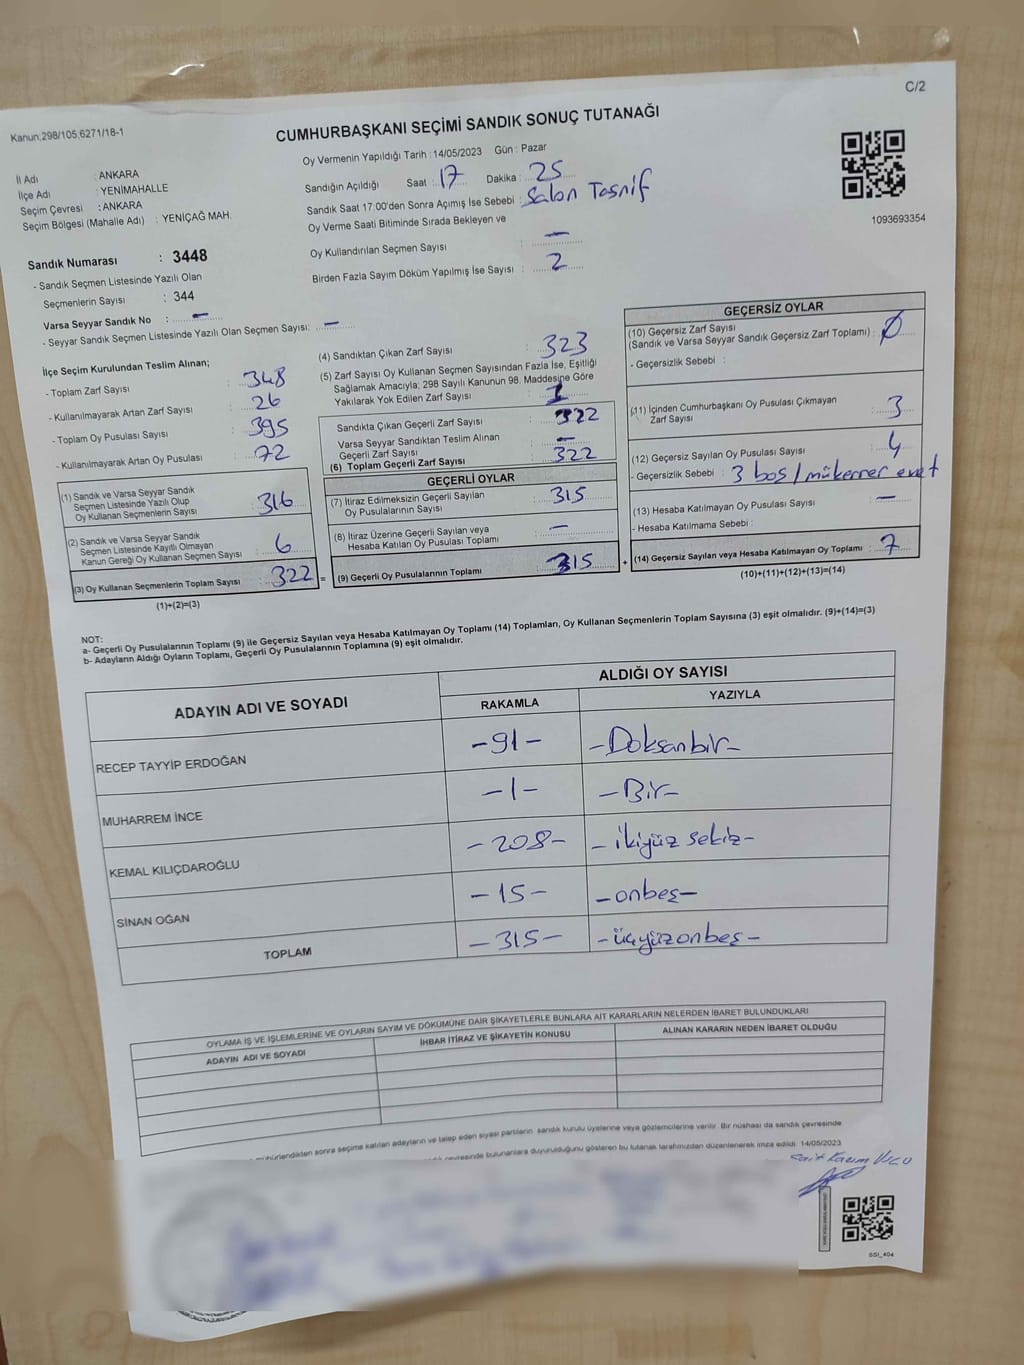 C/2
Kanun:298/105,6271/18-1
CUMHURBAŞKANI SEÇİMİ SANDIK SONUÇ TUTANAĞI
Oy Vermenin Yapıldığı Tarih : 14/05/2023 Gün : Pazar
İl Adı : ANKARA
İlçe Adı : YENİMAHALLE
Seçim Çevresi : ANKARA
Seçim Bölgesi (Mahalle Adı) : YENİÇAĞ MAH.
Sandığın Açıldığı Saat : 17 Dakika : 25
Sandık Saat 17:00'den Sonra Açımış İse Sebebi : Salon Tasnif
Oy Verme Saati Bitiminde Sırada Bekleyen ve
Oy Kullandırılan Seçmen Sayısı : —
Birden Fazla Sayım Döküm Yapılmış İse Sayısı : 2
1093693354
Sandık Numarası : 3448
- Sandık Seçmen Listesinde Yazılı Olan
Seçmenlerin Sayısı : 344
Varsa Seyyar Sandık No : —
- Seyyar Sandık Seçmen Listesinde Yazılı Olan Seçmen Sayısı: —
İlçe Seçim Kurulundan Teslim Alınan;
- Toplam Zarf Sayısı : 348
- Kullanılmayarak Artan Zarf Sayısı : 26
- Toplam Oy Pusulası Sayısı : 395
- Kullanılmayarak Artan Oy Pusulası : 72
(1) Sandık ve Varsa Seyyar Sandık
Seçmen Listesinde Yazılı Olup
Oy Kullanan Seçmenlerin Sayısı : 316
(2) Sandık ve Varsa Seyyar Sandık
Seçmen Listesinde Kayıtlı Olmayan
Kanun Gereği Oy Kullanan Seçmen Sayısı : 6
(3) Oy Kullanan Seçmenlerin Toplam Sayısı : 322 =
(1)+(2)=(3)
(4) Sandıktan Çıkan Zarf Sayısı : 323
(5) Zarf Sayısı Oy Kullanan Seçmen Sayısından Fazla İse, Eşitliği
Sağlamak Amacıyla; 298 Sayılı Kanunun 98. Maddesine Göre
Yakılarak Yok Edilen Zarf Sayısı : 1
Sandıkta Çıkan Geçerli Zarf Sayısı : 322
Varsa Seyyar Sandıktan Teslim Alınan
Geçerli Zarf Sayısı : —
(6) Toplam Geçerli Zarf Sayısı : 322
GEÇERLİ OYLAR
(7) İtiraz Edilmeksizin Geçerli Sayılan
Oy Pusulalarının Sayısı : 315
(8) İtiraz Üzerine Geçerli Sayılan veya
Hesaba Katılan Oy Pusulası Toplamı : —
(9) Geçerli Oy Pusulalarının Toplamı : 315 +
GEÇERSİZ OYLAR
(10) Geçersiz Zarf Sayısı
(Sandık ve Varsa Seyyar Sandık Geçersiz Zarf Toplamı) : 0
- Geçersizlik Sebebi :
(11) İçinden Cumhurbaşkanı Oy Pusulası Çıkmayan
Zarf Sayısı : 3
(12) Geçersiz Sayılan Oy Pusulası Sayısı : 4
- Geçersizlik Sebebi : 3 boş / mükerrer evet
(13) Hesaba Katılmayan Oy Pusulası Sayısı : —
- Hesaba Katılmama Sebebi :
(14) Geçersiz Sayılan veya Hesaba Katılmayan Oy Toplamı : 7
(10)+(11)+(12)+(13)=(14)
NOT:
a- Geçerli Oy Pusulalarının Toplamı (9) ile Geçersiz Sayılan veya Hesaba Katılmayan Oy Toplamı (14) Toplamları, Oy Kullanan Seçmenlerin Toplam Sayısına (3) eşit olmalıdır. (9)+(14)=(3)
b- Adayların Aldığı Oyların Toplamı, Geçerli Oy Pusulalarının Toplamına (9) eşit olmalıdır.
ADAYIN ADI VE SOYADI
ALDIĞI OY SAYISI
RAKAMLA YAZIYLA
RECEP TAYYİP ERDOĞAN -91- -Doksanbir-
MUHARREM İNCE -1- -Bir-
KEMAL KILIÇDAROĞLU -208- -ikiyüz sekiz-
SİNAN OĞAN -15- -onbeş-
TOPLAM -315- -üçyüzonbeş-
OYLAMA İŞ VE İŞLEMLERİNE VE OYLARIN SAYIM VE DÖKÜMÜNE DAİR ŞİKAYETLERLE BUNLARA AİT KARARLARIN NELERDEN İBARET BULUNDUKLARI
ADAYIN ADI VE SOYADI İHBAR İTİRAZ VE ŞİKAYETİN KONUSU ALINAN KARARIN NEDEN İBARET OLDUĞU
mühürlendikten sonra seçime katılan adayların ve talep eden siyasi partilerin sandık kurulu üyelerine veya gözlemcilerine verilir. Bir nüshası da sandık çevresinde
çevresinde bulunanlara duyurulduğunu gösteren bu tutanak tarafımızdan düzenlenerek imza edildi. 14/05/2023
SSI_404